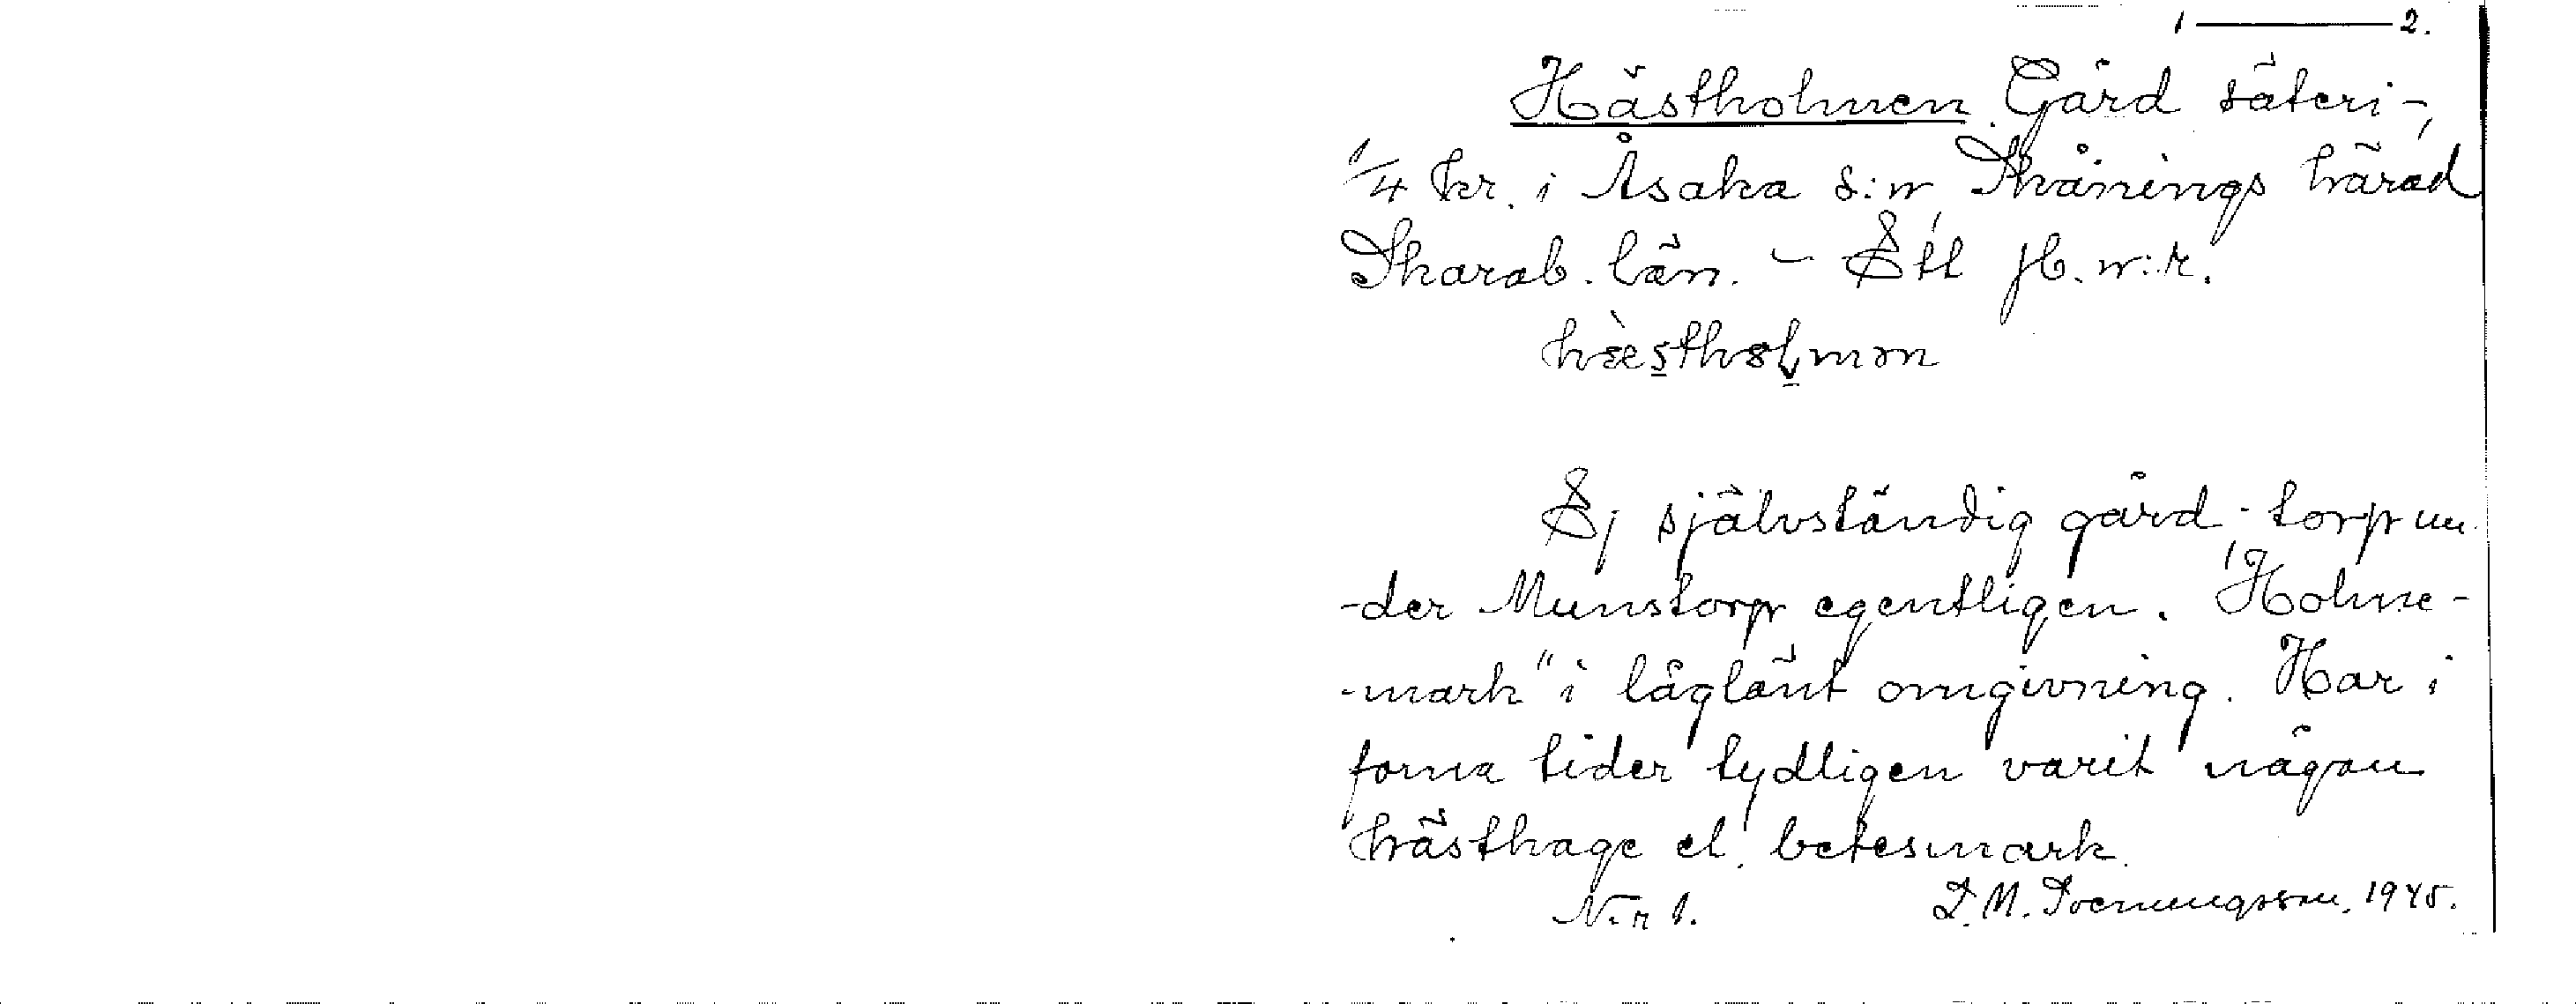 1 ——— 2.
Hästholmen Gård säteri-,
1/4 kr. i Åsaka s:n Skånings härad
Skarab. län. - Ett jb. n:r.
hæ̀stholmən
Ej självständig gård, torp un
-der Munstorp egentligen. "Holme-
-mark" i låglänt omgivning. Har i
forna tider tydligen varit någon
hästhage el. betesmark.
N:r 1. 1945.